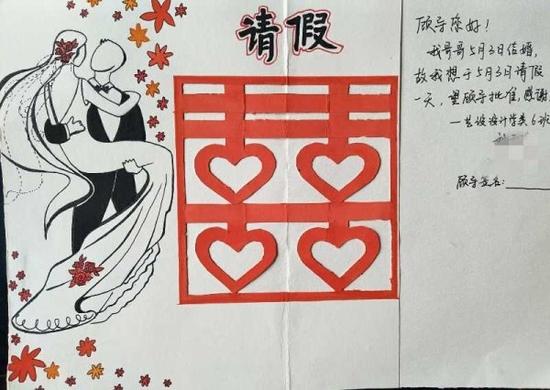 请假
顾导您好！
我哥哥5月3日结婚，
故我想于5月3日请假
一天，望顾导批准，感谢
一艺设设计学类6班
顾导签名：